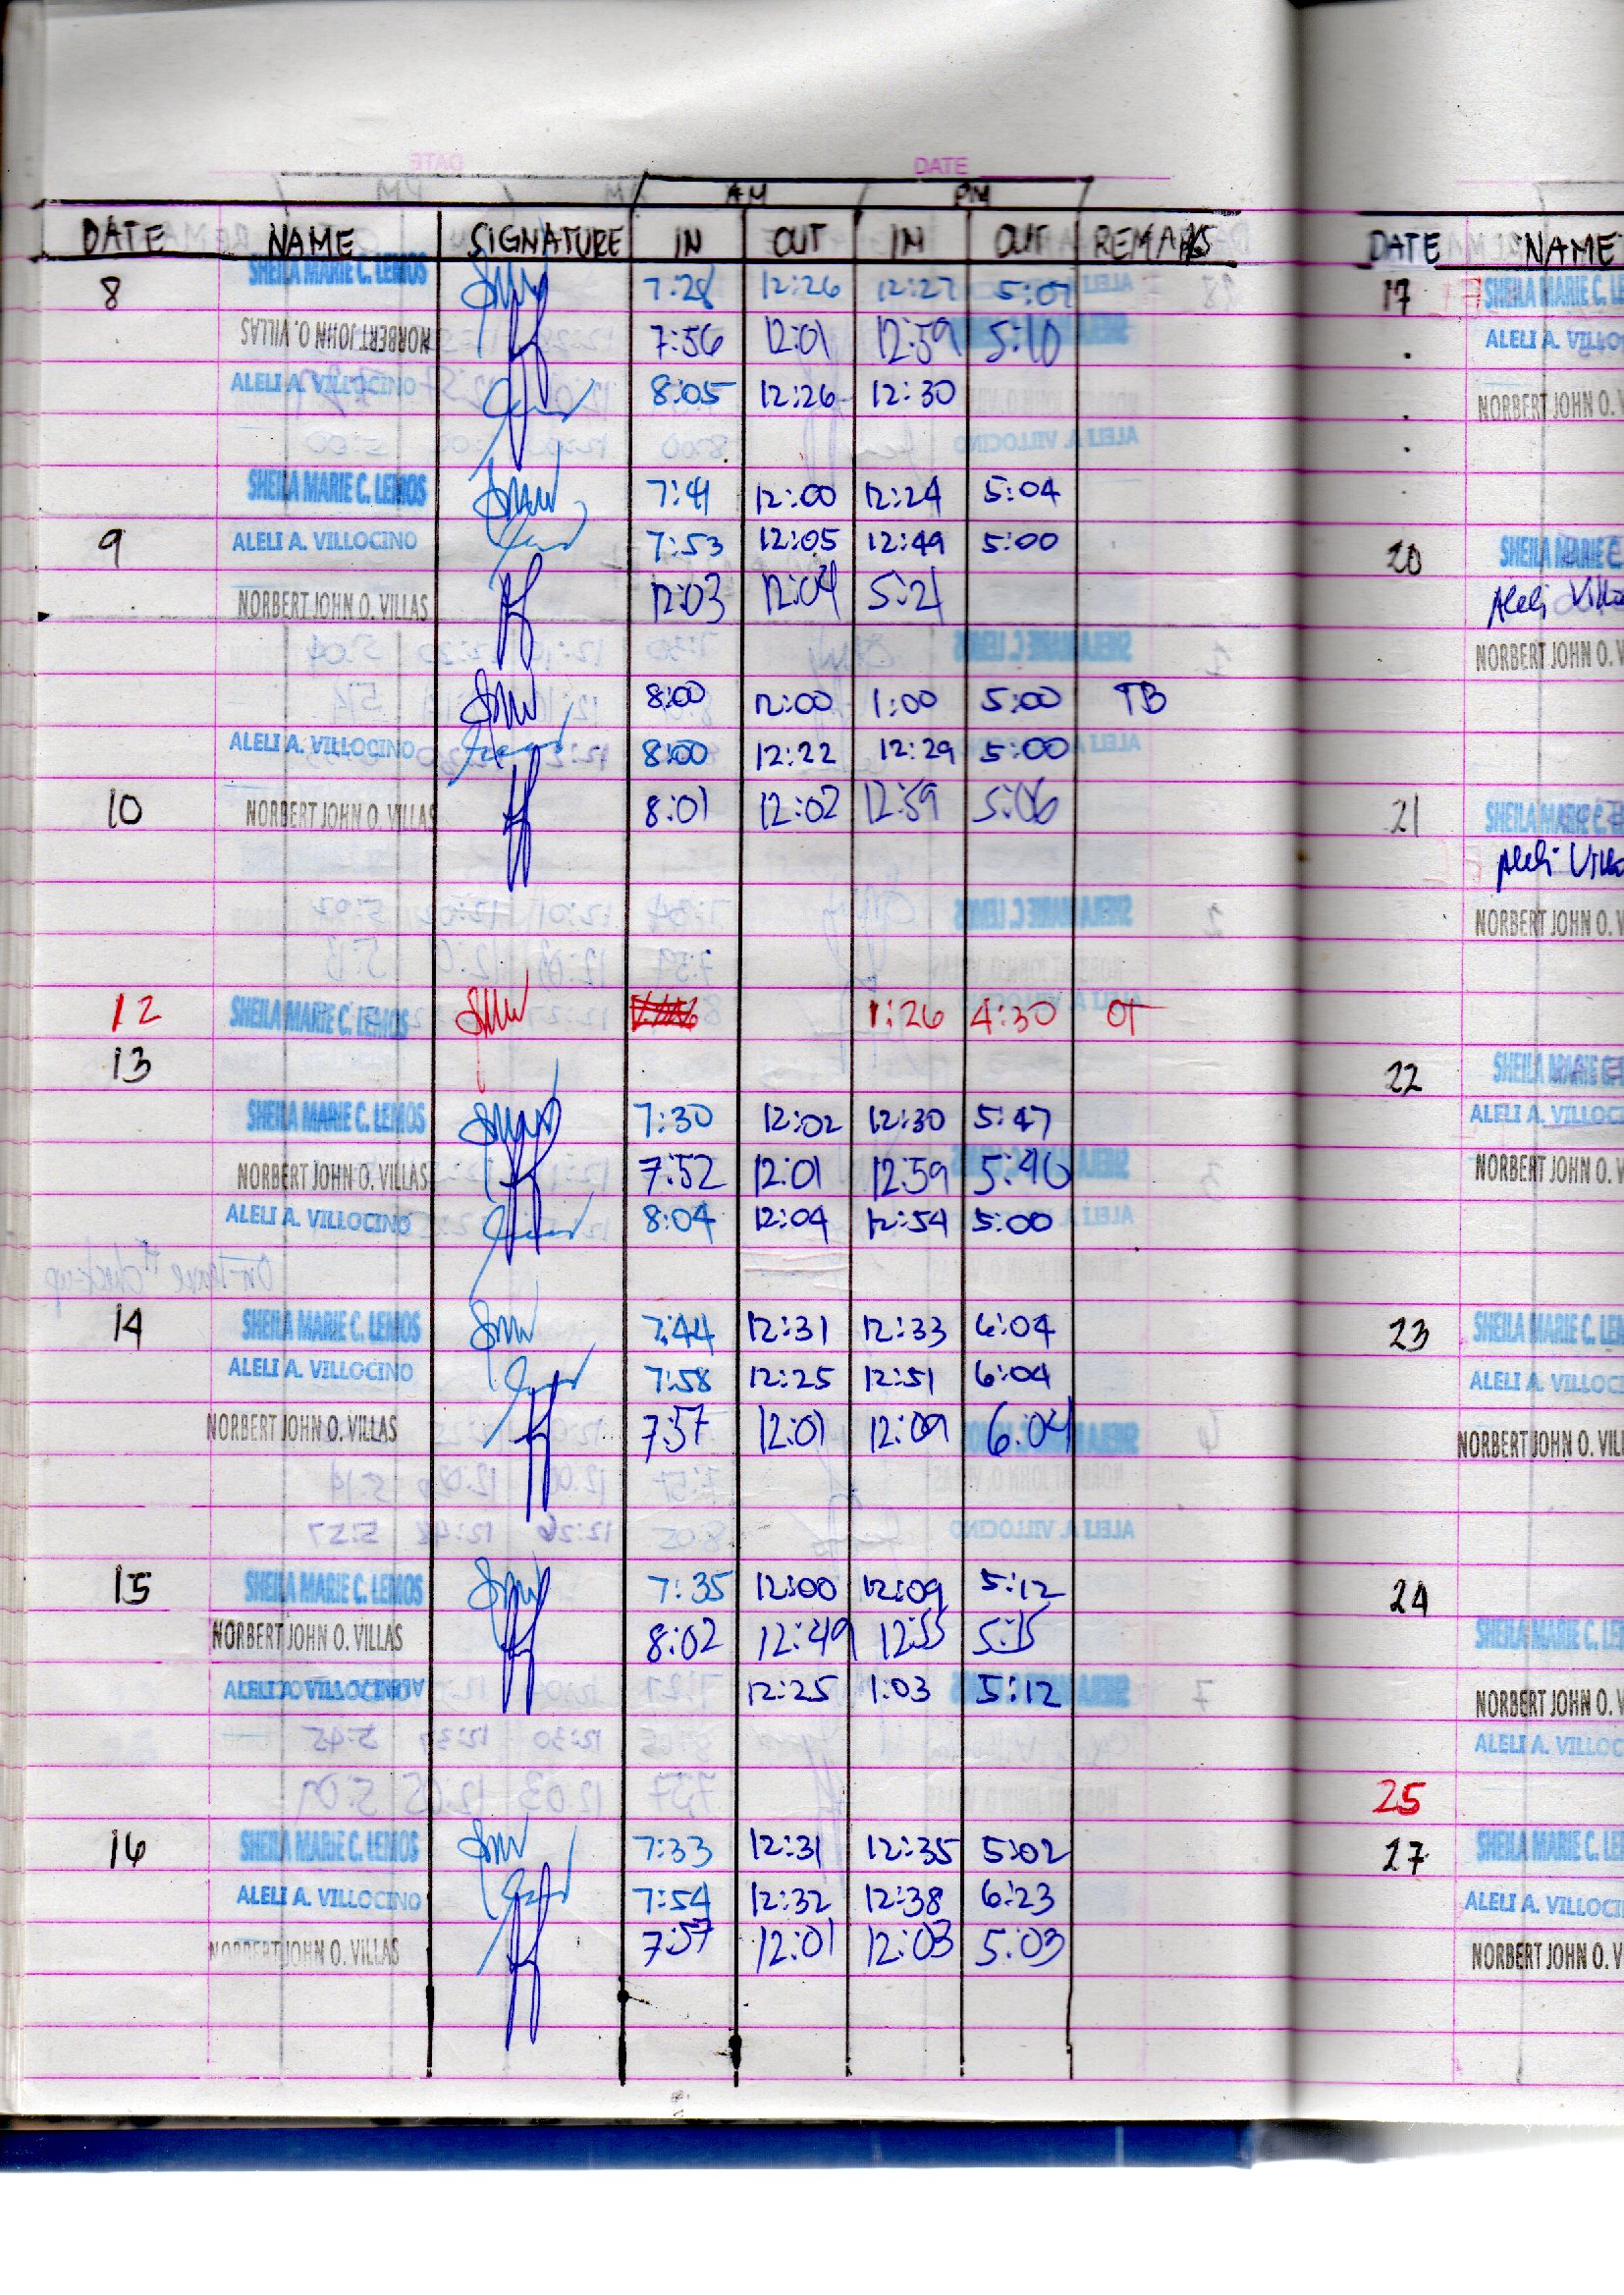 DATE
AM PM
DATE NAME SIGNATURE IN OUT IN OUT REMARKS
8 SHEILA MARIE C. LEMOS 7:28 12:26 12:27 5:07
NORBERT JOHN O. VILLAS 7:56 12:01 12:59 5:10
ALELI A. VILLOCINO 8:05 12:26 12:30
SHEILA MARIE C. LEMOS 7:41 12:00 12:24 5:04
9 ALELI A. VILLOCINO 7:53 12:05 12:49 5:00
NORBERT JOHN O. VILLAS 12:03 12:04 5:21
8:00 12:00 1:00 5:00 TB
ALELI A. VILLOCINO 8:00 12:22 12:29 5:00
10 NORBERT JOHN O. VILLAS 8:01 12:02 12:59 5:06
12 SHEILA MARIE C. LEMOS 1:26 4:30 OT
13
SHEILA MARIE C. LEMOS 7:30 12:02 12:30 5:47
NORBERT JOHN O. VILLAS 7:52 12:01 12:59 5:46
ALELI A. VILLOCINO 8:04 12:04 12:54 5:00
14 SHEILA MARIE C. LEMOS 7:44 12:31 12:33 6:04
ALELI A. VILLOCINO 7:58 12:25 12:51 6:04
NORBERT JOHN O. VILLAS 7:57 12:01 12:09 6:04
15 SHEILA MARIE C. LEMOS 7:35 12:00 12:09 5:12
NORBERT JOHN O. VILLAS 8:02 12:49 12:55 5:15
ALELI A. VILLOCINO 12:25 1:03 5:12
16 SHEILA MARIE C. LEMOS 7:33 12:31 12:35 5:02
ALELI A. VILLOCINO 7:54 12:32 12:38 6:23
NORBERT JOHN O. VILLAS 7:57 12:01 12:03 5:03
DATE NAME
17 SHEILA MARIE C. LE
ALELI A. VILLO
NORBERT JOHN O. V
20 SHEILA MARIE C
Aleli Villo
NORBERT JOHN O. V
21 SHEILA MARIE C
Aleli Villo
NORBERT JOHN O. V
22 SHEILA MARIE C
ALELI A. VILLOCI
NORBERT JOHN O. V
23 SHEILA MARIE C. LEM
ALELI A. VILLOCI
NORBERT JOHN O. VIL
24
SHEILA MARIE C. LE
NORBERT JOHN O. V
ALELI A. VILLOC
25
27 SHEILA MARIE C. LE
ALELI A. VILLOCI
NORBERT JOHN O. V